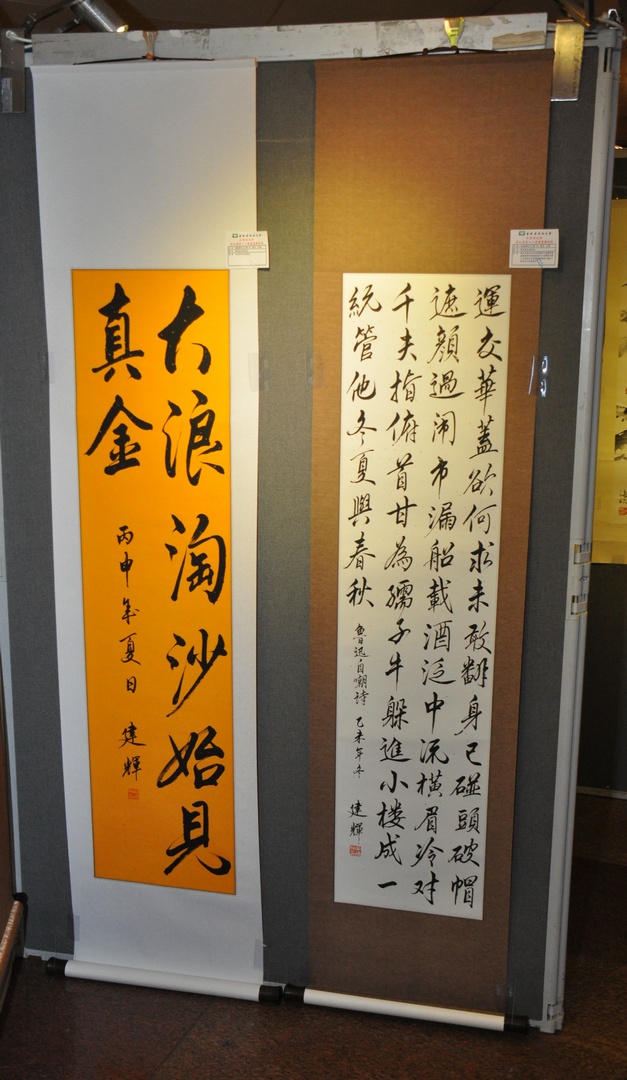 運交華蓋欲何求未敢翻身已碰頭破帽
遮顏過闹市漏船載酒泛中流橫眉冷对
千夫指俯首甘為孺子牛躲進小楼成一
統管他冬夏與春秋 魯迅自嘲詩 乙未年冬 建輝
大浪淘沙始見
真金 丙申年夏日 建輝